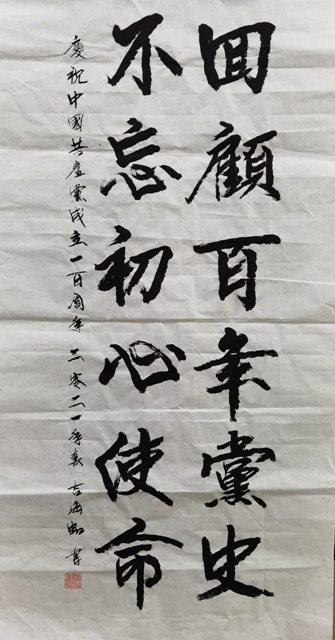 回顧百年黨史
不忘初心使命
慶祝中國共產黨成立一百周年 二零二一年春 吉海 書